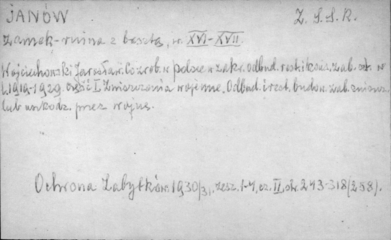 JANÓW
Z. S. S. R.
Zamek-ruina z basztą, w. XVI-XVII
Wojciechowski Jarosław: Co zrob. w Polsce w zakr. odbud. rest. i kons. zab. st. w
l. 1919-1929. część I. Zniszczenia wojenne. Odbud. i rest. budow. zab. zniszcz.
lub uszkodz. przez wojnę.
Ochrona Zabytków. 1930/31, zesz. 1-4, cz. II, str. 243-318 (288).